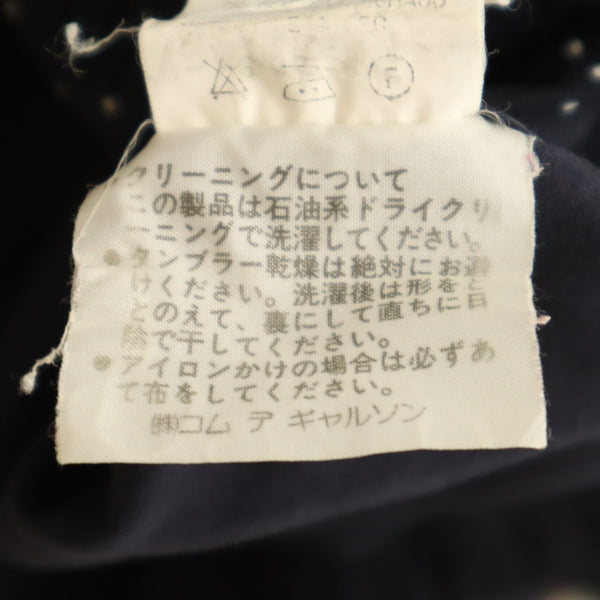 クリーニングについて
この製品は石油系ドライクリ
ーニングで洗濯してください。
●タンブラー乾燥は絶対にお避
けください。洗濯後は形をと
とのえて、裏にして直ちに日
陰で干してください。
●アイロンかけの場合は必ずあ
て布をしてください。
㈱コム デ ギャルソン